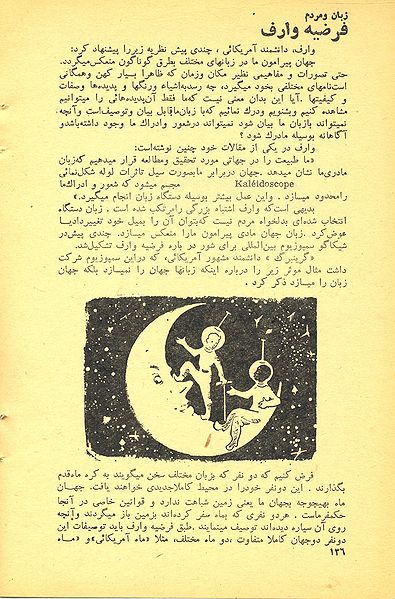 زبان ومردم
فرضیه وارف
وارف، دانشمند آمریکائی ، چندی پیش نظریه زیررا پیشنهاد کرد:
جهان پیرامون ما در زبانهای مختلف بطرق گوناگون منعکس‌میگردد.
حتی تصورات و مفاهیمی نظیر مکان وزمان که ظاهرا بسیار کهن وهمگانی
است‌نامهای مختلفی بخود میگیرد، چه رسدبه‌اشیاء ورنگها و پدیده‌ها وصفات
و کیفیتها .آیا این بدان معنی نیست که‌ما فقط آن‌پدیده‌هائی را میتوانیم
مشاهده کنیم وبشنویم ودرك نمائیم که با زبان‌ماقابل بیان وتوصیف‌است وآنچه
نمیتواند بازبان ما بیان شود نمیتواند درشعور وادراك ما وجود داشته‌باشدو
آگاهانه بوسیله مادرك شود ؟
وارف در یکی از مقالات خود چنین نوشته‌است:
«ما طبیعت را در جهاتی مورد تحقیق ومطالعه قرار میدهیم که‌زبان
مادری‌ما نشان میدهد .جهان دربرابر مابصورت سیل تاثرات لوله شکل‌نمائی
Kaléidoscope مجسم میشود که شعور و ادراك‌ما
رامحدود میسازد . واین عمل بیشتر بوسیله دستگاه زبان انجام میگیرد.»
بدیهی است‌که وارف اشتباه بزرگی رامرتکب شده است . زبان دستگاه
انتخاب شده‌ای بدلخواه مردم نیست که‌بتوان آن را بمیل خود تغییردادیا
عوض‌کرد .زبان جهان مادی پیرامون مارا منعکس میسازد. چندی پیش‌در
شیکاگو سمپوزیوم بین‌المللی برای شور در باره فرضیه وارف تشکیل‌شد.
«گرینبرگ » دانشمند مشهور آمریکائی، که دراین سمپوزیوم شرکت
داشت مثال موثر زیر را درباره اینکه زبانها جهان را نمیسازد بلکه جهان
زبان را میسازد ذکر کرد .
فرض کنیم که دو نفر که بزبان مختلف سخن میگویند به کره ماه‌قدم
بگذارند . این دونفر خودرا در محیط کاملاجدیدی خواهند یافت. جهان
ماه بهیچوجه بجهان ما یعنی زمین شباهت ندارد و قوانین خاصی در آنجا
حکمفرماست . هردو نفری که بماه سفر کرده‌اند بزمین باز میگردند وآنچه
روی آن سیاره دیده‌اند توصیف مینمایند .طبق فرضیه وارف باید توصیفات این
دونفر دوجهان کاملا متفاوت ،دو ماه مختلف، مثلا «ماه آمریکائی»و «ماه
۱۳۶